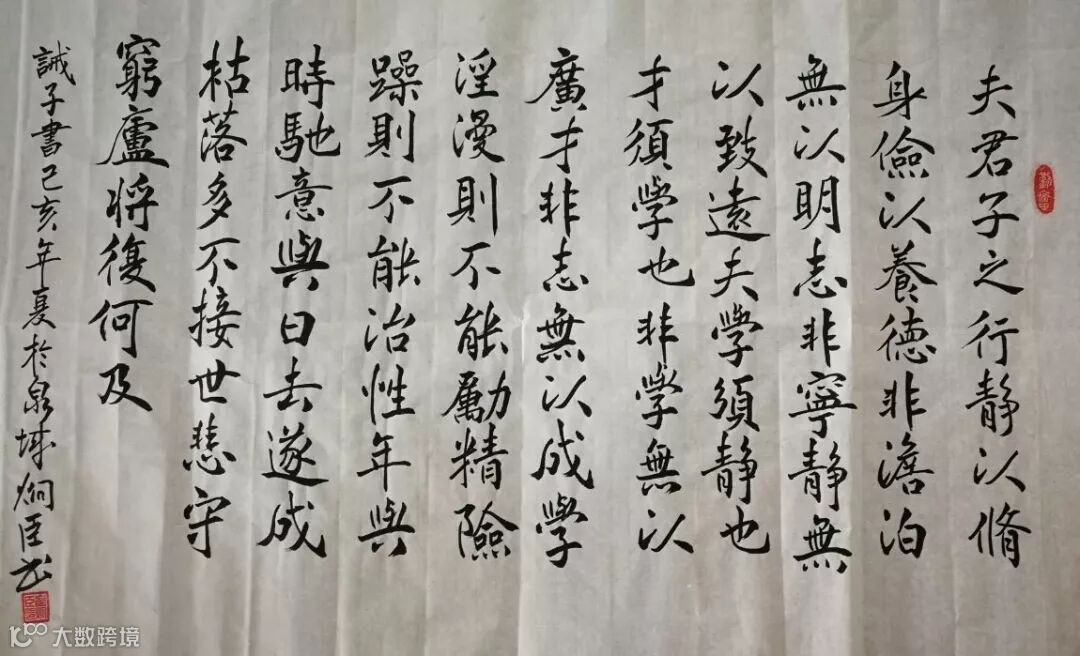 夫君子之行静以脩
身儉以養德非澹泊
無以明志非寧静無
以致遠夫學須静也
才須學也非學無以
廣才非志無以成學
淫漫則不能勵精險
躁則不能治性年與
時馳意與日去遂成
枯落多不接世悲守
窮廬將復何及
誡子書己亥年夏於泉城炯臣书
大数跨境